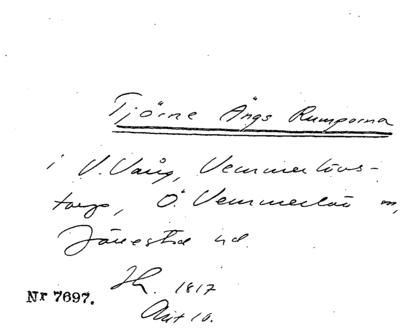 Tjörne Ängs Rumporna
i V. Vång, Vemmerlövs-
torp, Ö. Vemmerlöv m,
Järrestad hd.
Jh. 1817
Akt 10.
Nr 7697.